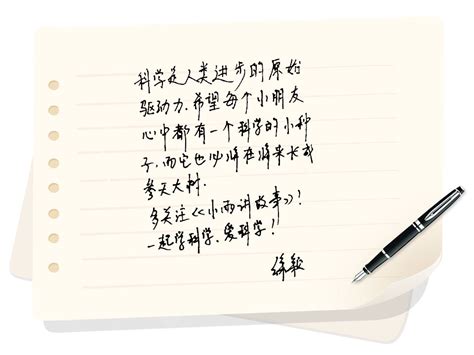 科学是人类进步的原始
驱动力.希望每个小朋友
心中都有一个科学的小种
子,而它也必将在将来长成
参天大树.
多关注《小雨讲故事》!
一起学科学、爱科学!